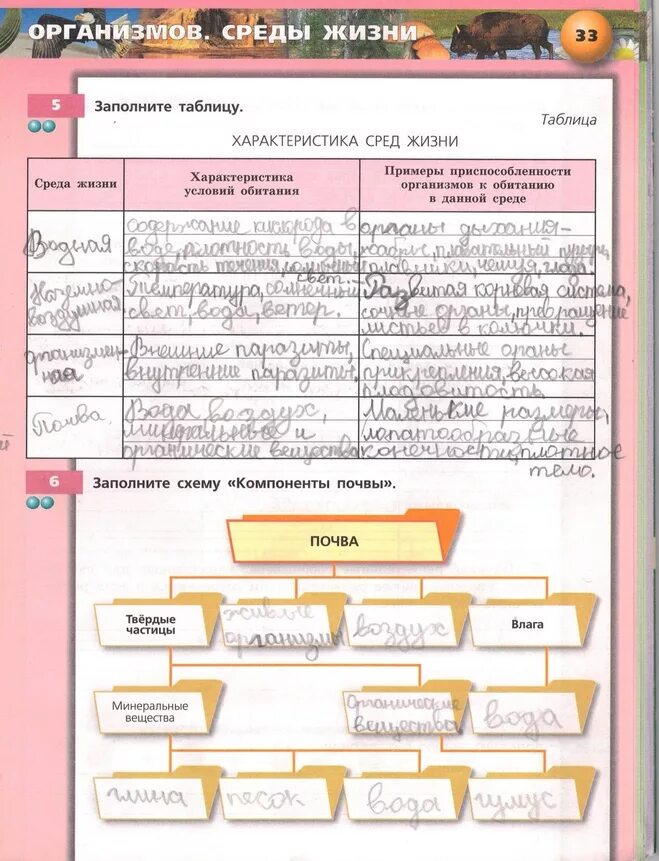 ОРГАНИЗМОВ. СРЕДЫ ЖИЗНИ
33
5
Заполните таблицу.
Таблица
ХАРАКТЕРИСТИКА СРЕД ЖИЗНИ
Среда жизни
Характеристика
условий обитания
Примеры приспособленности
организмов к обитанию
в данной среде
Водная
содержание кислорода в
воде, плотность воды,
скорость течения, солнечный
свет.
органы дыхания-
жабры, плавательный пузырь,
плавники, чешуя,
Наземно-
воздушная
Температура, солнечный
свет, вода, ветер.
Развитая корневая система,
сочные органы, превращение
листьев в колючки.
Организмен-
ная
Внешние паразиты,
внутренние паразиты.
Специальные органы
прикрепления, высокая
плодовитость
Почва
Вода воздух,
минеральные и
органические вещества
Маленькие размеры,
лопатообразные
конечности, плотное
тело.
6
Заполните схему «Компоненты почвы».
ПОЧВА
Твёрдые
частицы
живые
организмы
воздух
Влага
Минеральные
вещества
Органические
вещества
вода
глина
песок
вода
гумус